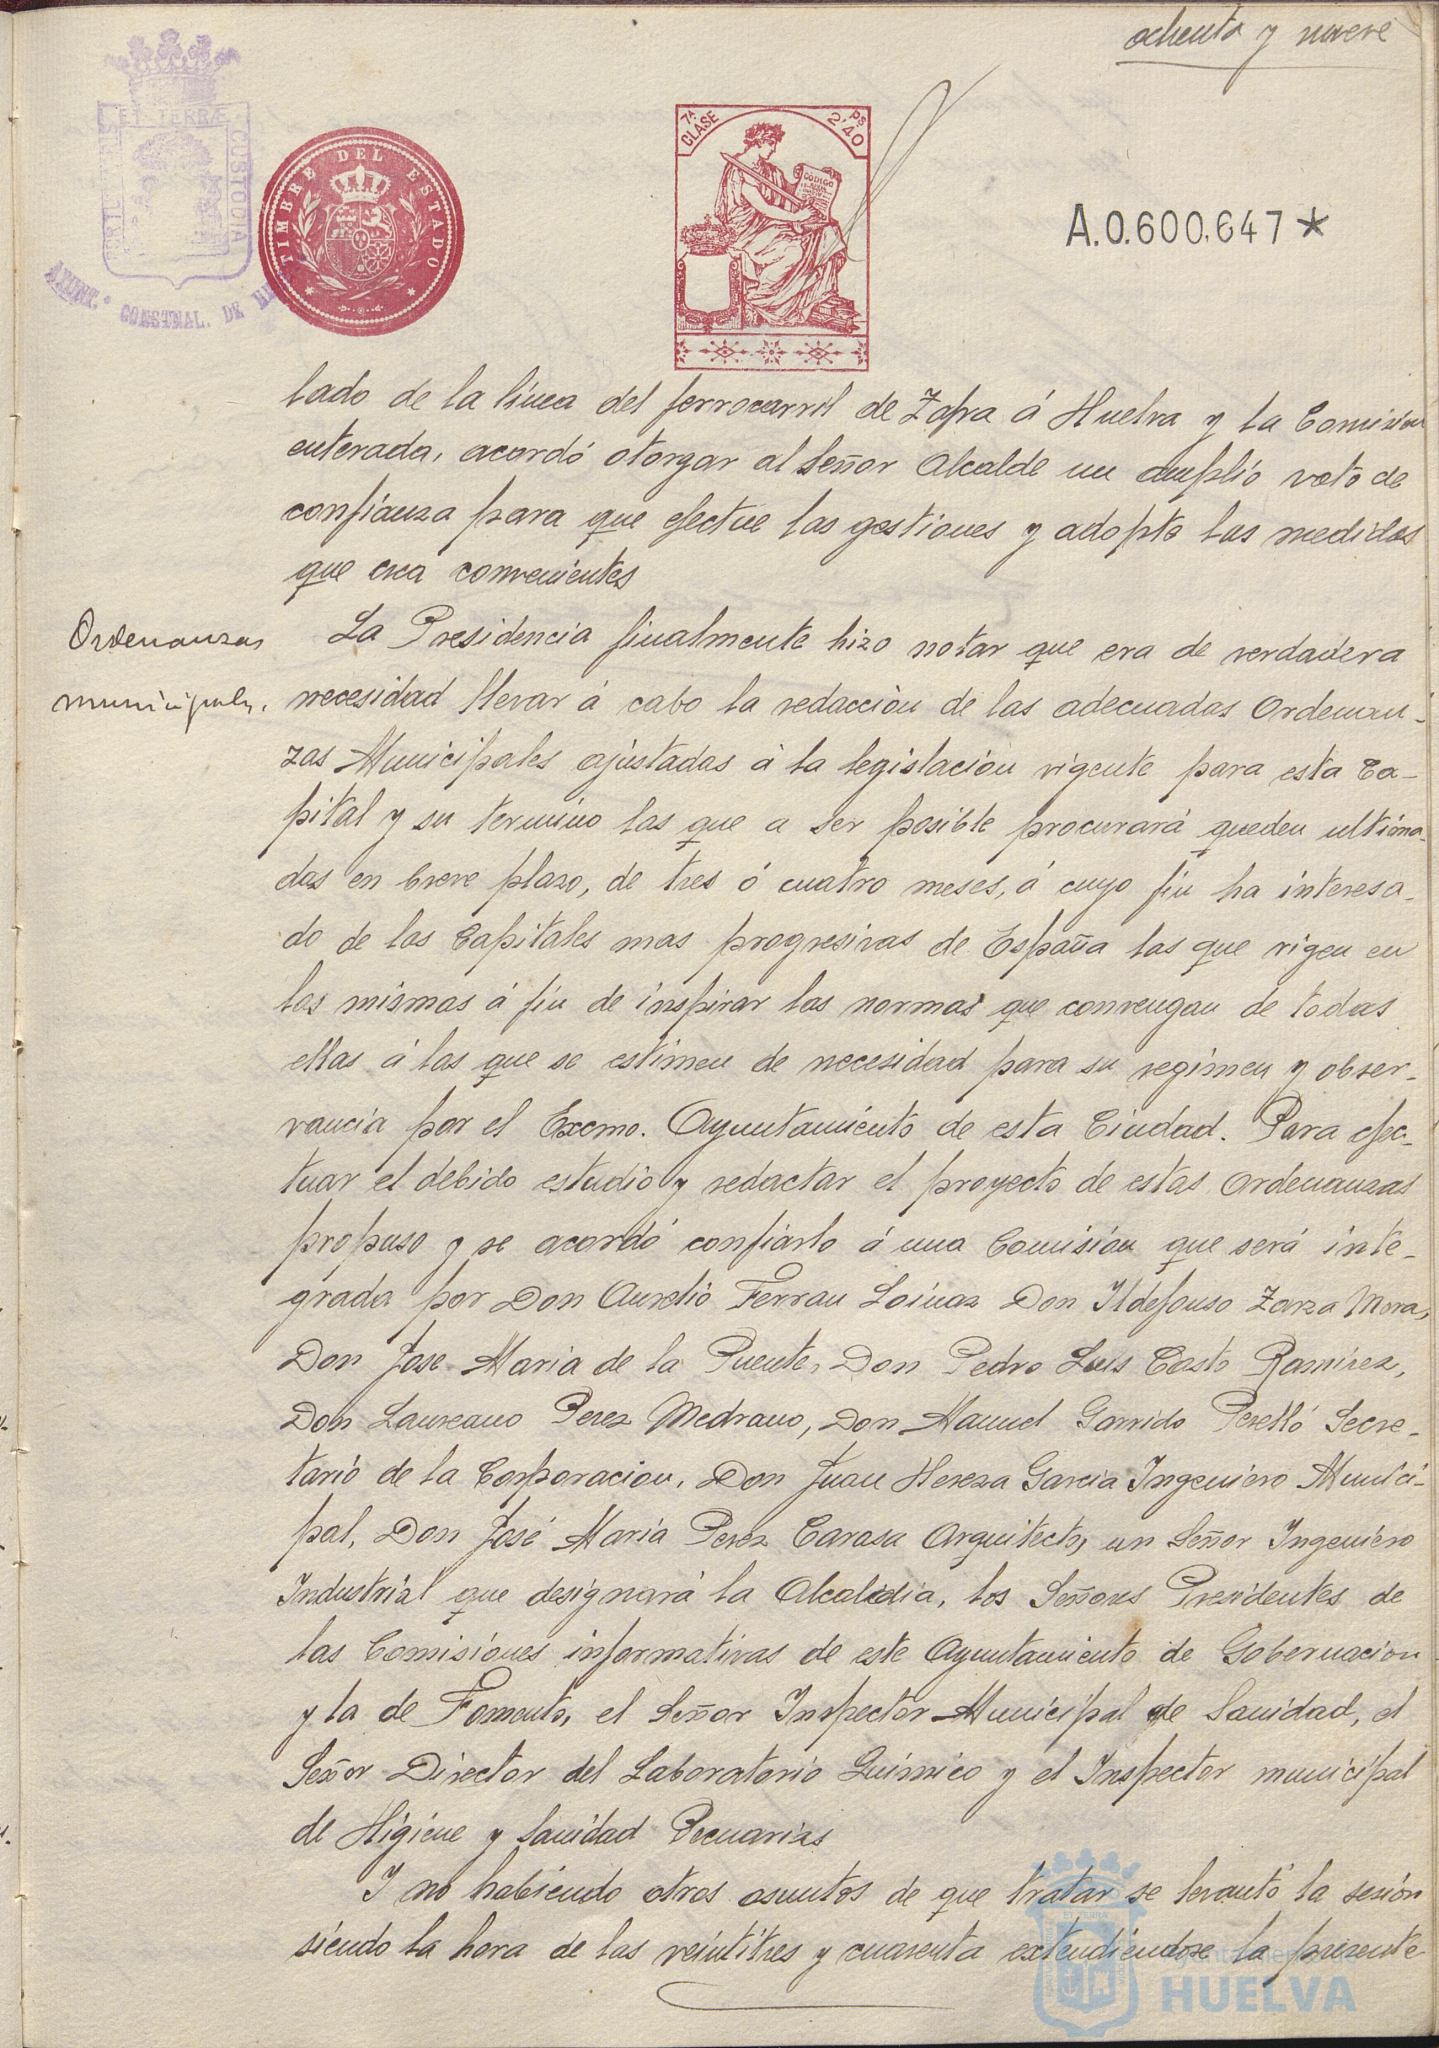 ochenta y nueve
PORTUS MARIS ET TERRÆ CUSTODIA
AYUNT. CONSTNAL. DE
TIMBRE DEL ESTADO
7ª CLASE
PS 2'40
CODIGO
A.0.600.647*
tado de la línea del ferrocarril de Zafra á Huelva y la Comisión
enterada, acordó otorgar al Señor Alcalde un amplio voto de
confianza para que efectue las gestiones y adopte las medidas
que crea convenientes
Ordenanzas
municipales.
La Presidencia finalmente hizo notar que era de verdadera
necesidad llevar á cabo la redacción de las adecuadas Ordenan-
zas Municipales ajustadas á la legislación vigente para esta Ca-
pital y su termino las que a ser posible procurará queden ultima-
das en breve plazo, de tres ó cuatro meses, á cuyo fin ha interesa-
do de las Capitales mas progresivas de España las que rigen en
las mismas á fin de inspirar las normas que convengan de todas
ellas á las que se estimen de necesidad para su regimen y obser-
vancia por el Excmo. Ayuntamiento de esta Ciudad. Para efec-
tuar el debido estudio y redactar el proyecto de estas Ordenanzas
propuso y se acordó confiarlo á una Comisión que será inte-
grada por Don Aurelio Ferran Loinaz Don Ildefonso Zarza Mora,
Don Jose Maria de la Puente, Don Pedro Luis Casto Ramirez,
Don Laureano Perez Medrano, Don Manuel Garrido Perelló Secre-
tario de la Corporacion, Don Juan Hereza Garcia Ingeniero Munici-
pal, Don José Maria Perez Carasa Arquitecto, un Señor Ingeniero
Industrial que designará la Alcaldia, los Señores Presidentes de
las Comisiones informativas de este Ayuntamiento de Gobernacion
y la de Fomento, el Señor Inspector Municipal de Sanidad, el
Señor Director del Laboratorio Quimico y el Inspector municipal
de Higiene y Sanidad Pecuarias
Y no habiendo otros asuntos de que tratar se levantó la sesión
siendo la hora de las veintitres y cuarenta extendiendose la presente
Ayuntamiento de
HUELVA